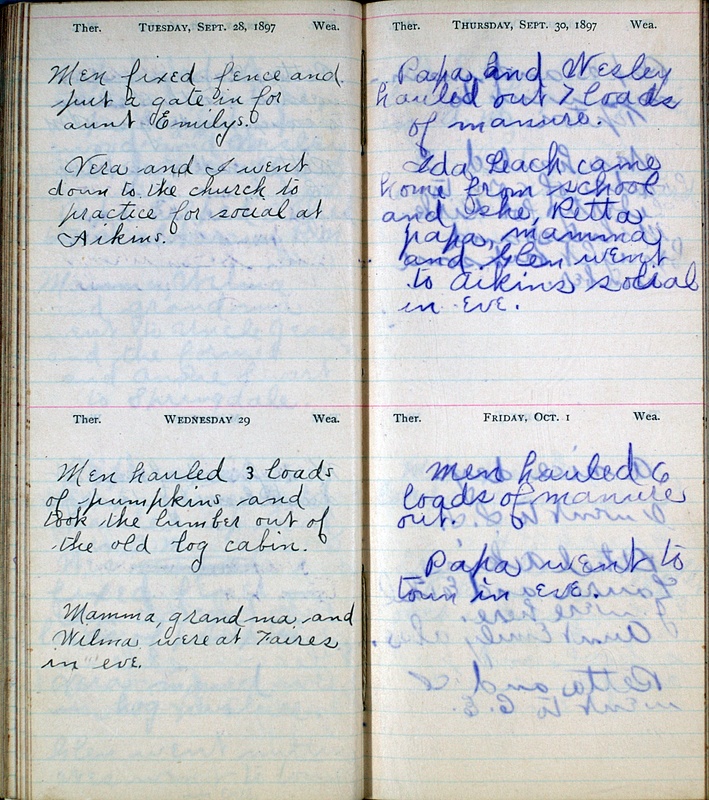 Ther. Tuesday, Sept. 28, 1897 Wea.
Men fixed fence and
put a gate in for
aunt Emilys.
Vera and I went
down to the church to
practice for social at
Aikins.
Ther. Wednesday 29 Wea.
Men hauled 3 loads
of pumpkins and
took the lumber out of
the old log cabin.
Mamma, grandma and
Wilma were at Faires
in eve.
Ther. Thursday, Sept. 30, 1897 Wea.
Papa and Wesley
hauled out 7 loads
of manure.
Ida Leach came
home from school
and she, Retta
papa, mamma
and Glen went
to Aikins social
in eve.
Ther. Friday, Oct. 1 Wea.
Men hauled 6
loads of manure
out.
Papa went to
town in eve.